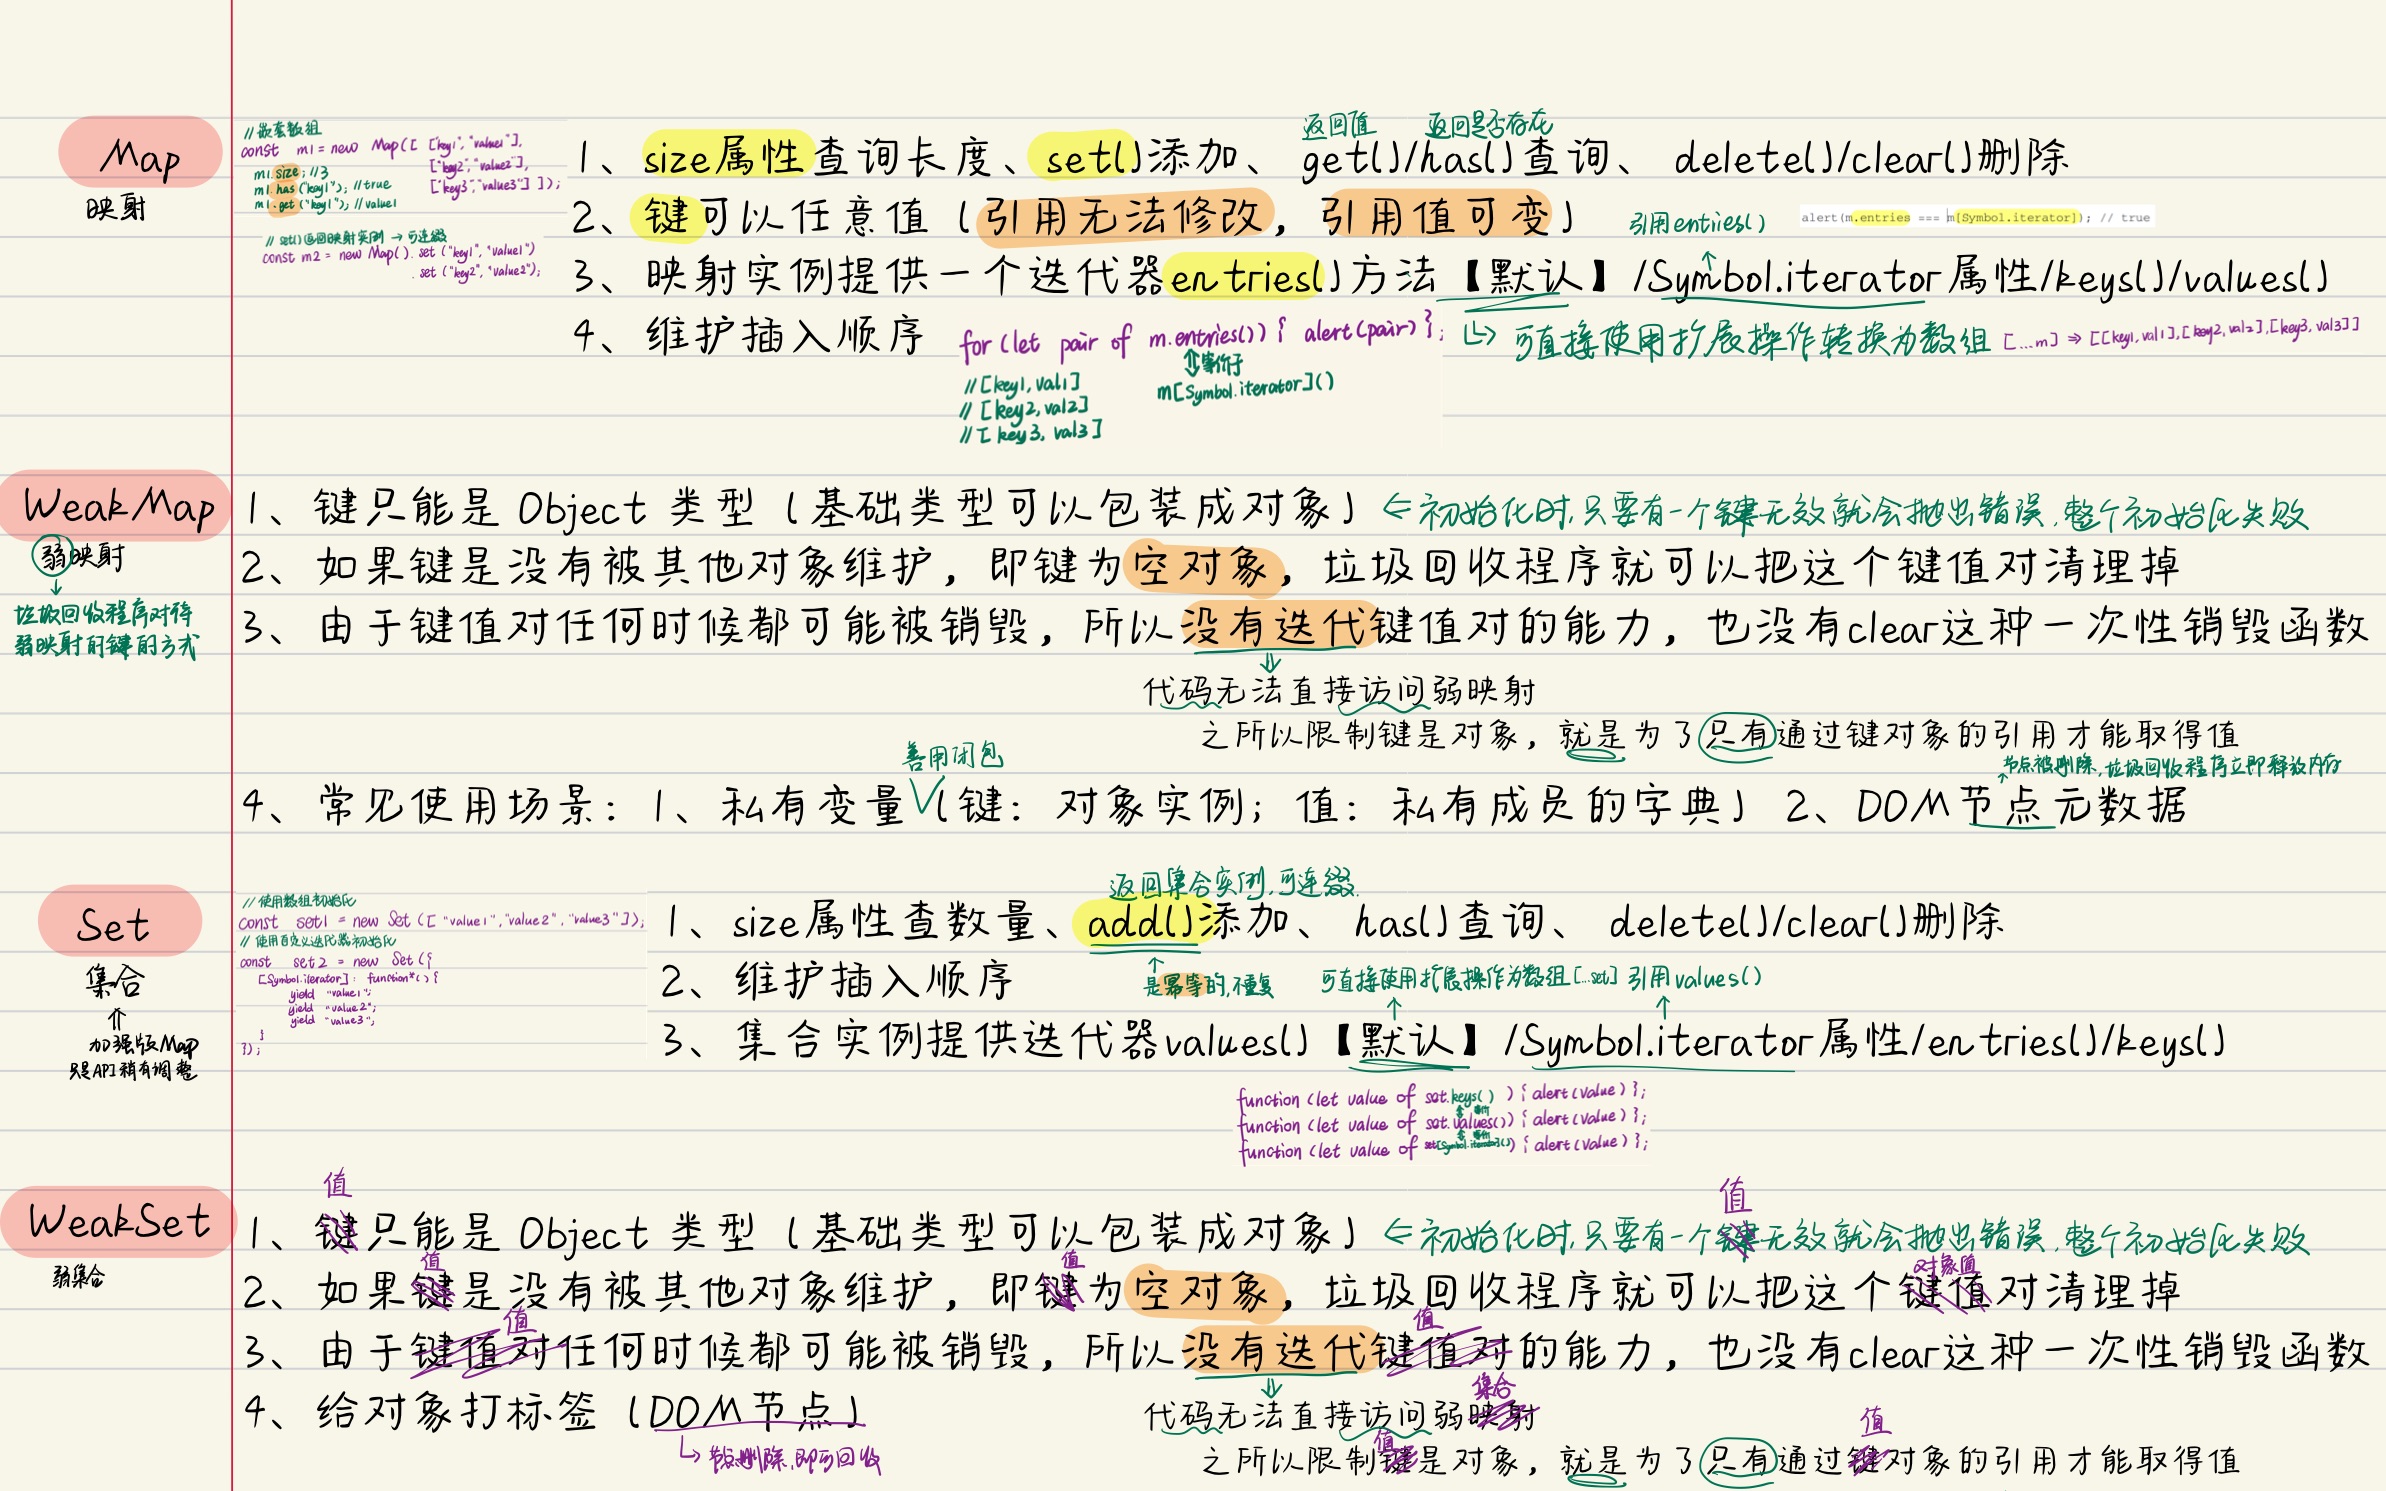 Map
映射
// 嵌套数组
const m1 = new Map([ ["key1","value1"],
["key2","value2"],
["key3","value3"] ]);
m1.size; //3
m1.has("key1"); //true
m1.get("key1"); //value1
// set()返回映射实例 → 可连缀
const m2 = new Map().set("key1","value1")
.set("key2","value2");
返回值 返回是否存在
1、size属性查询长度、set()添加、get()/has()查询、delete()/clear()删除
2、键可以任意值(引用无法修改,引用值可变)
引用entries() alert(m.entries === m[Symbol.iterator]); // true
3、映射实例提供一个迭代器entries()方法【默认】/Symbol.iterator属性/keys()/values()
4、维护插入顺序
for (let pair of m.entries()) { alert(pair) };
⇕等价于
m[Symbol.iterator]()
// [key1, val1]
// [key2, val2]
// [key3, val3]
↳ 可直接使用扩展操作转换为数组 [...m] ⇒ [[key1,val1],[key2,val2],[key3,val3]]
WeakMap
弱映射
↓
垃圾回收程序对待
弱映射的键的方式
1、键只能是 Object 类型(基础类型可以包装成对象) ← 初始化时,只要有一个键无效就会抛出错误,整个初始化失败
2、如果键是没有被其他对象维护,即键为空对象,垃圾回收程序就可以把这个键值对清理掉
3、由于键值对任何时候都可能被销毁,所以没有迭代键值对的能力,也没有clear这种一次性销毁函数
↓
代码无法直接访问弱映射
之所以限制键是对象,就是为了只有通过键对象的引用才能取得值
善用闭包
↑节点被删除,垃圾回收程序立即释放内存
4、常见使用场景:1、私有变量(键:对象实例;值:私有成员的字典) 2、DOM节点元数据
Set
集合
⇑
加强版Map
只是API稍有调整
// 使用数组初始化
const set1 = new Set(["value1","value2","value3"]);
// 使用自定义迭代器初始化
const set2 = new Set({
[Symbol.iterator]: function*() {
yield "value1";
yield "value2";
yield "value3";
}
});
返回集合实例,可连缀.
1、size属性查数量、add()添加、has()查询、delete()/clear()删除
↑
是幂等的,不重复
2、维护插入顺序
可直接使用扩展操作为数组[...set] 引用values()
3、集合实例提供迭代器values()【默认】/Symbol.iterator属性/entries()/keys()
function (let value of set.keys() ) { alert(value) };
function (let value of set.values()) { alert(value) };
function (let value of set[Symbol.iterator]()) { alert(value) };
WeakSet
弱集合
1、值只能是 Object 类型(基础类型可以包装成对象) ← 初始化时,只要有一个值无效就会抛出错误,整个初始化失败
2、如果值是没有被其他对象维护,即值为空对象,垃圾回收程序就可以把这个对象值对清理掉
3、由于值任何时候都可能被销毁,所以没有迭代值的能力,也没有clear这种一次性销毁函数
↓
代码无法直接访问弱集合
之所以限制值是对象,就是为了只有通过值对象的引用才能取得值
4、给对象打标签(DOM节点)
↳ 节点删除,即可回收